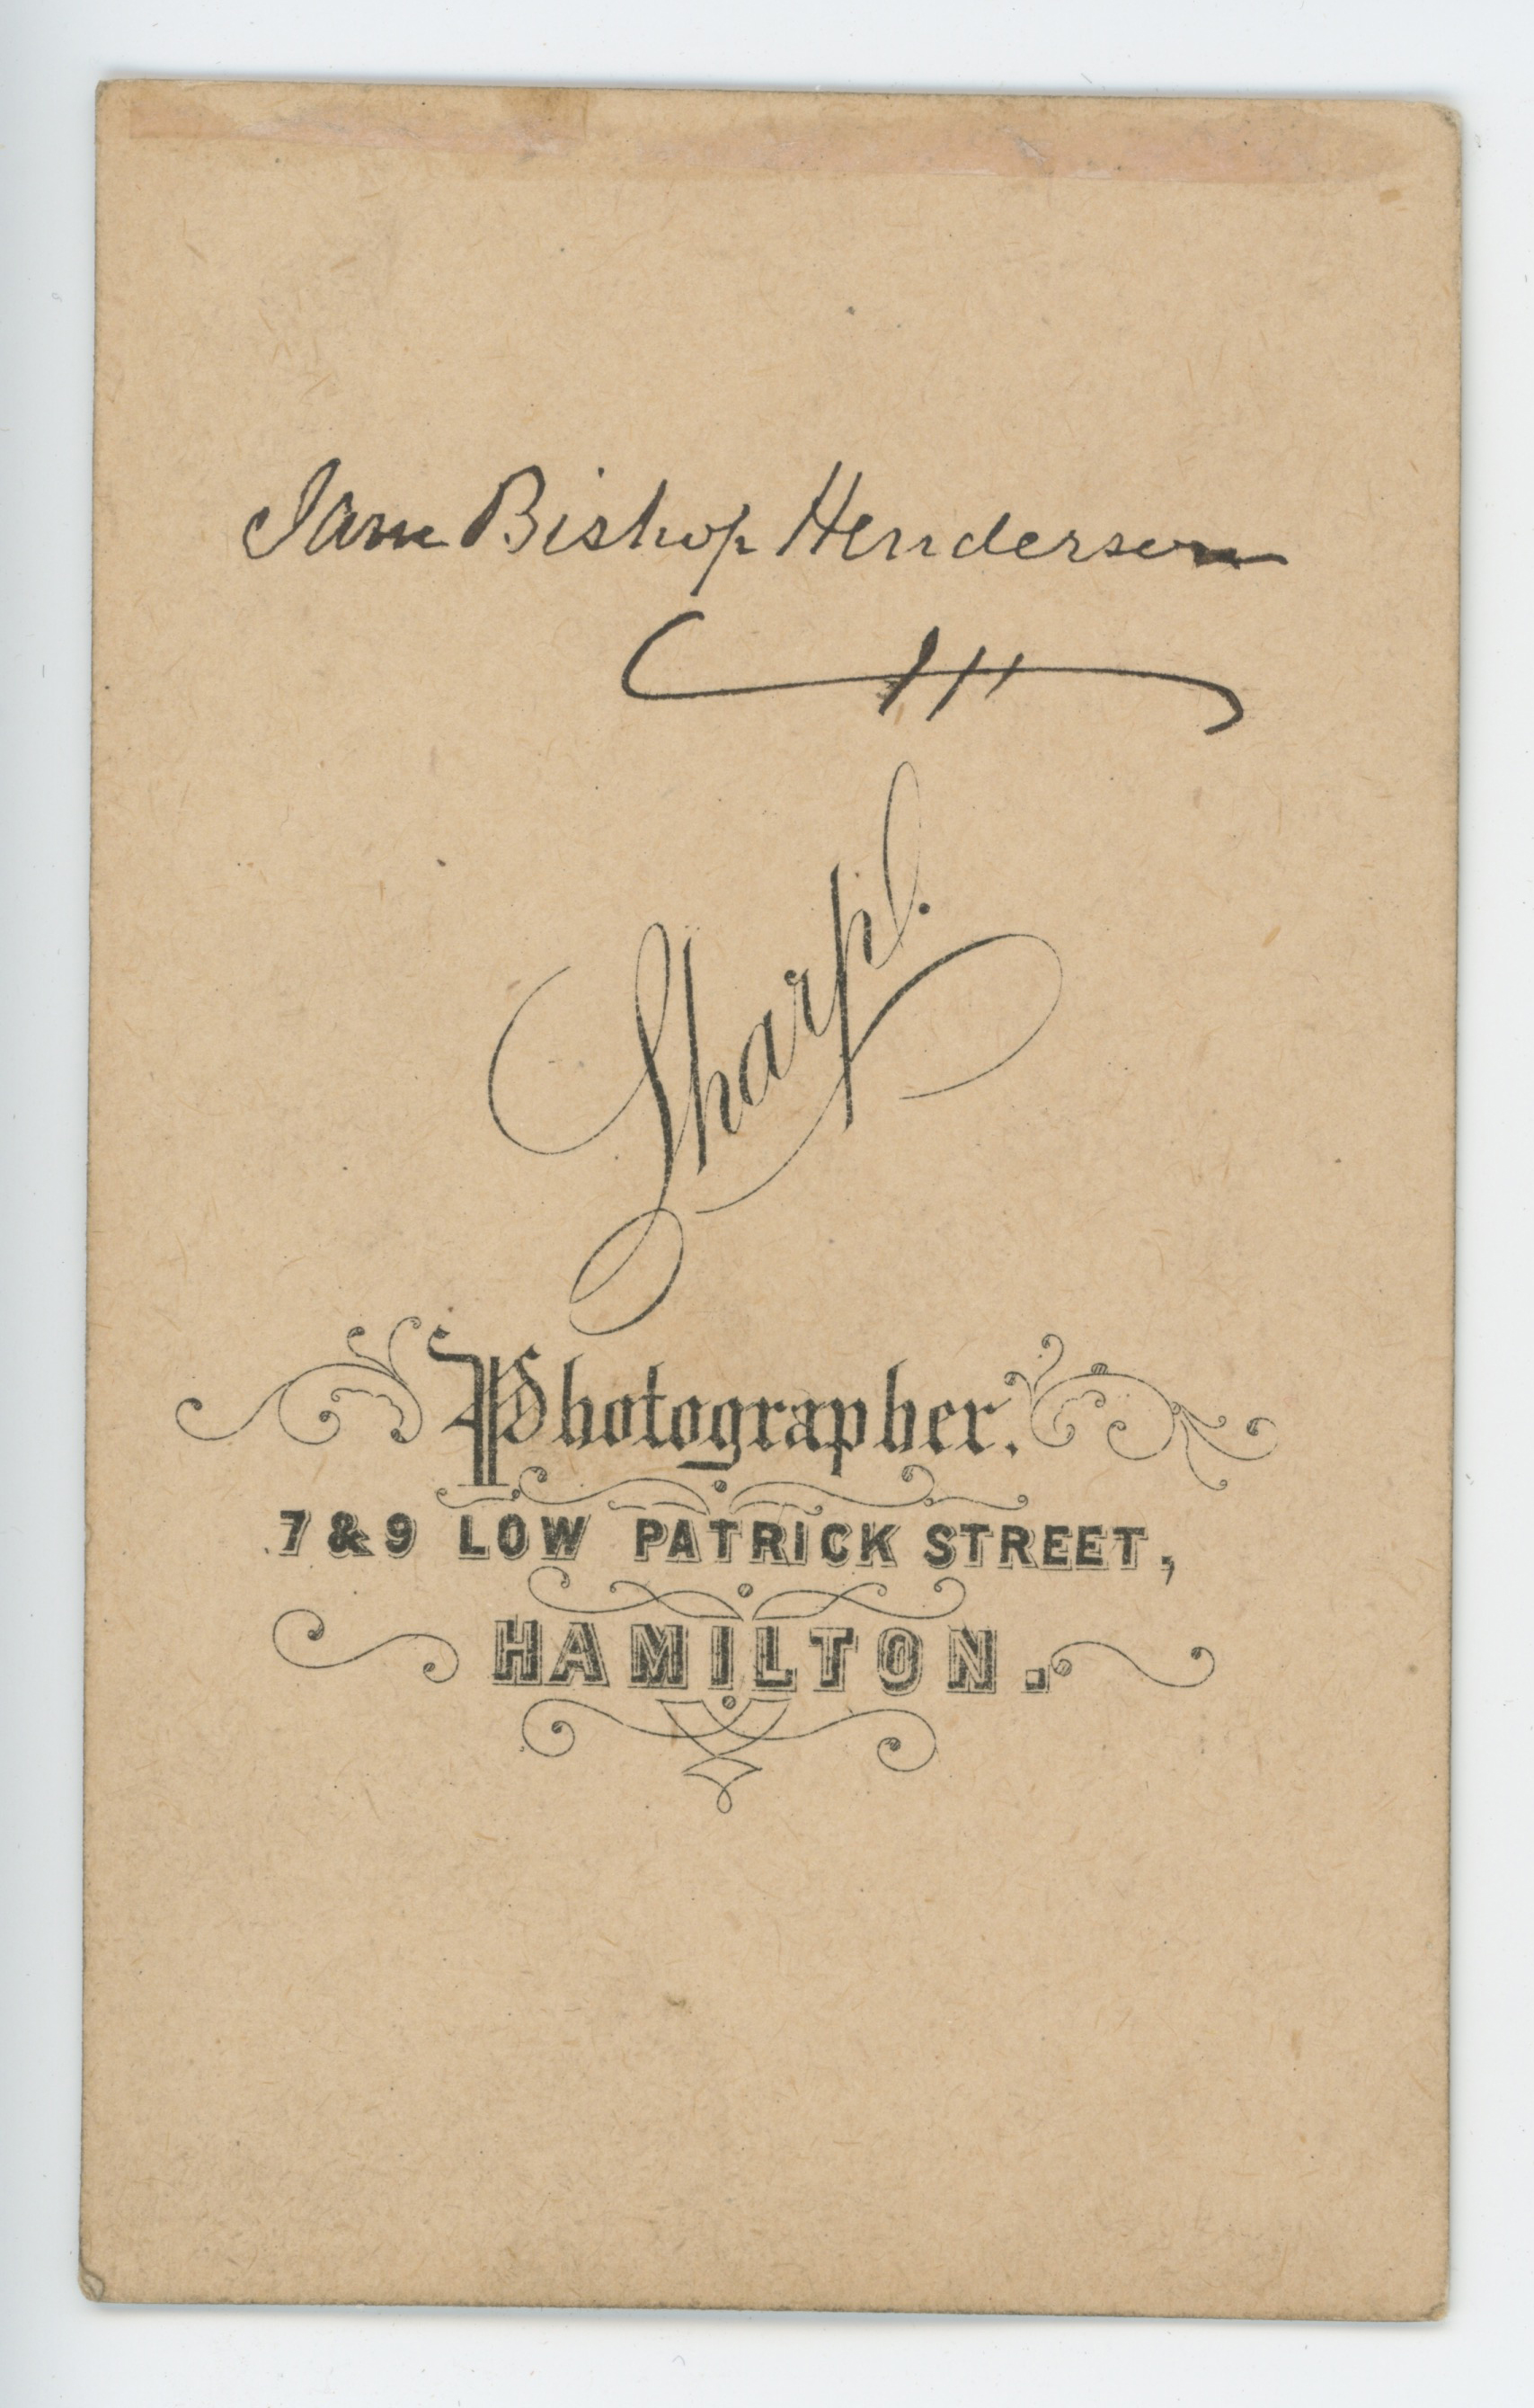 Sam Bishop Henderson
Sharp.
Photographer.
7 & 9 LOW PATRICK STREET,
HAMILTON.